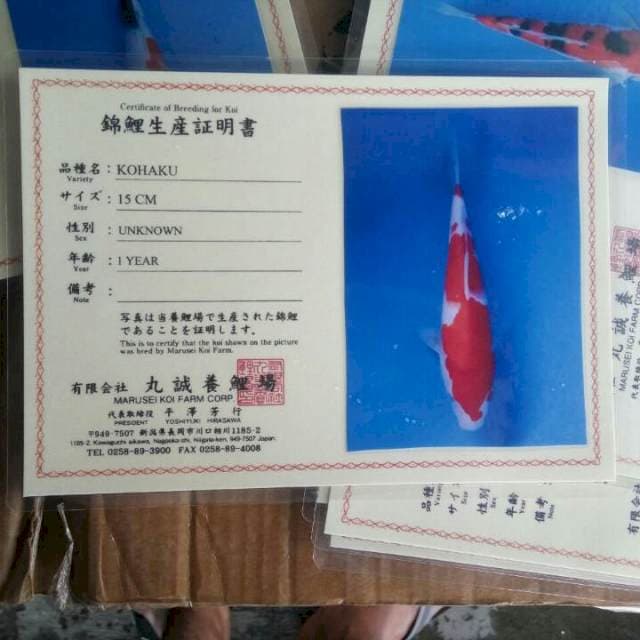 Certificate of Breeding for Koi
錦鯉生産証明書
品種名: KOHAKU
Variety
サイズ: 15 CM
Size
性別: UNKNOWN
Sex
年齢: 1 YEAR
Year
備考:
Note
写真は当養鯉場で生産された錦鯉
であることを証明します。
This is to certify that the koi shown on the picture
was bred by Marusei Koi Farm.
有限会社 丸誠養鯉場
MARUSEI KOI FARM CORP.
代表取締役 平澤芳行
PRESIDENT YOSHIYUKI HIRASAWA
〒949-7507 新潟県長岡市川口相川1185-2
1185-2, Kawaguchi aikawa, Nagaoka-chi, Niigata-ken, 949-7507 Japan.
TEL 0258-89-3900 FAX 0258-89-4008
丸誠養鯉場
MARUSEI KOI FARM CORP.
品種
サイズ
性別
年齢
備考
有限